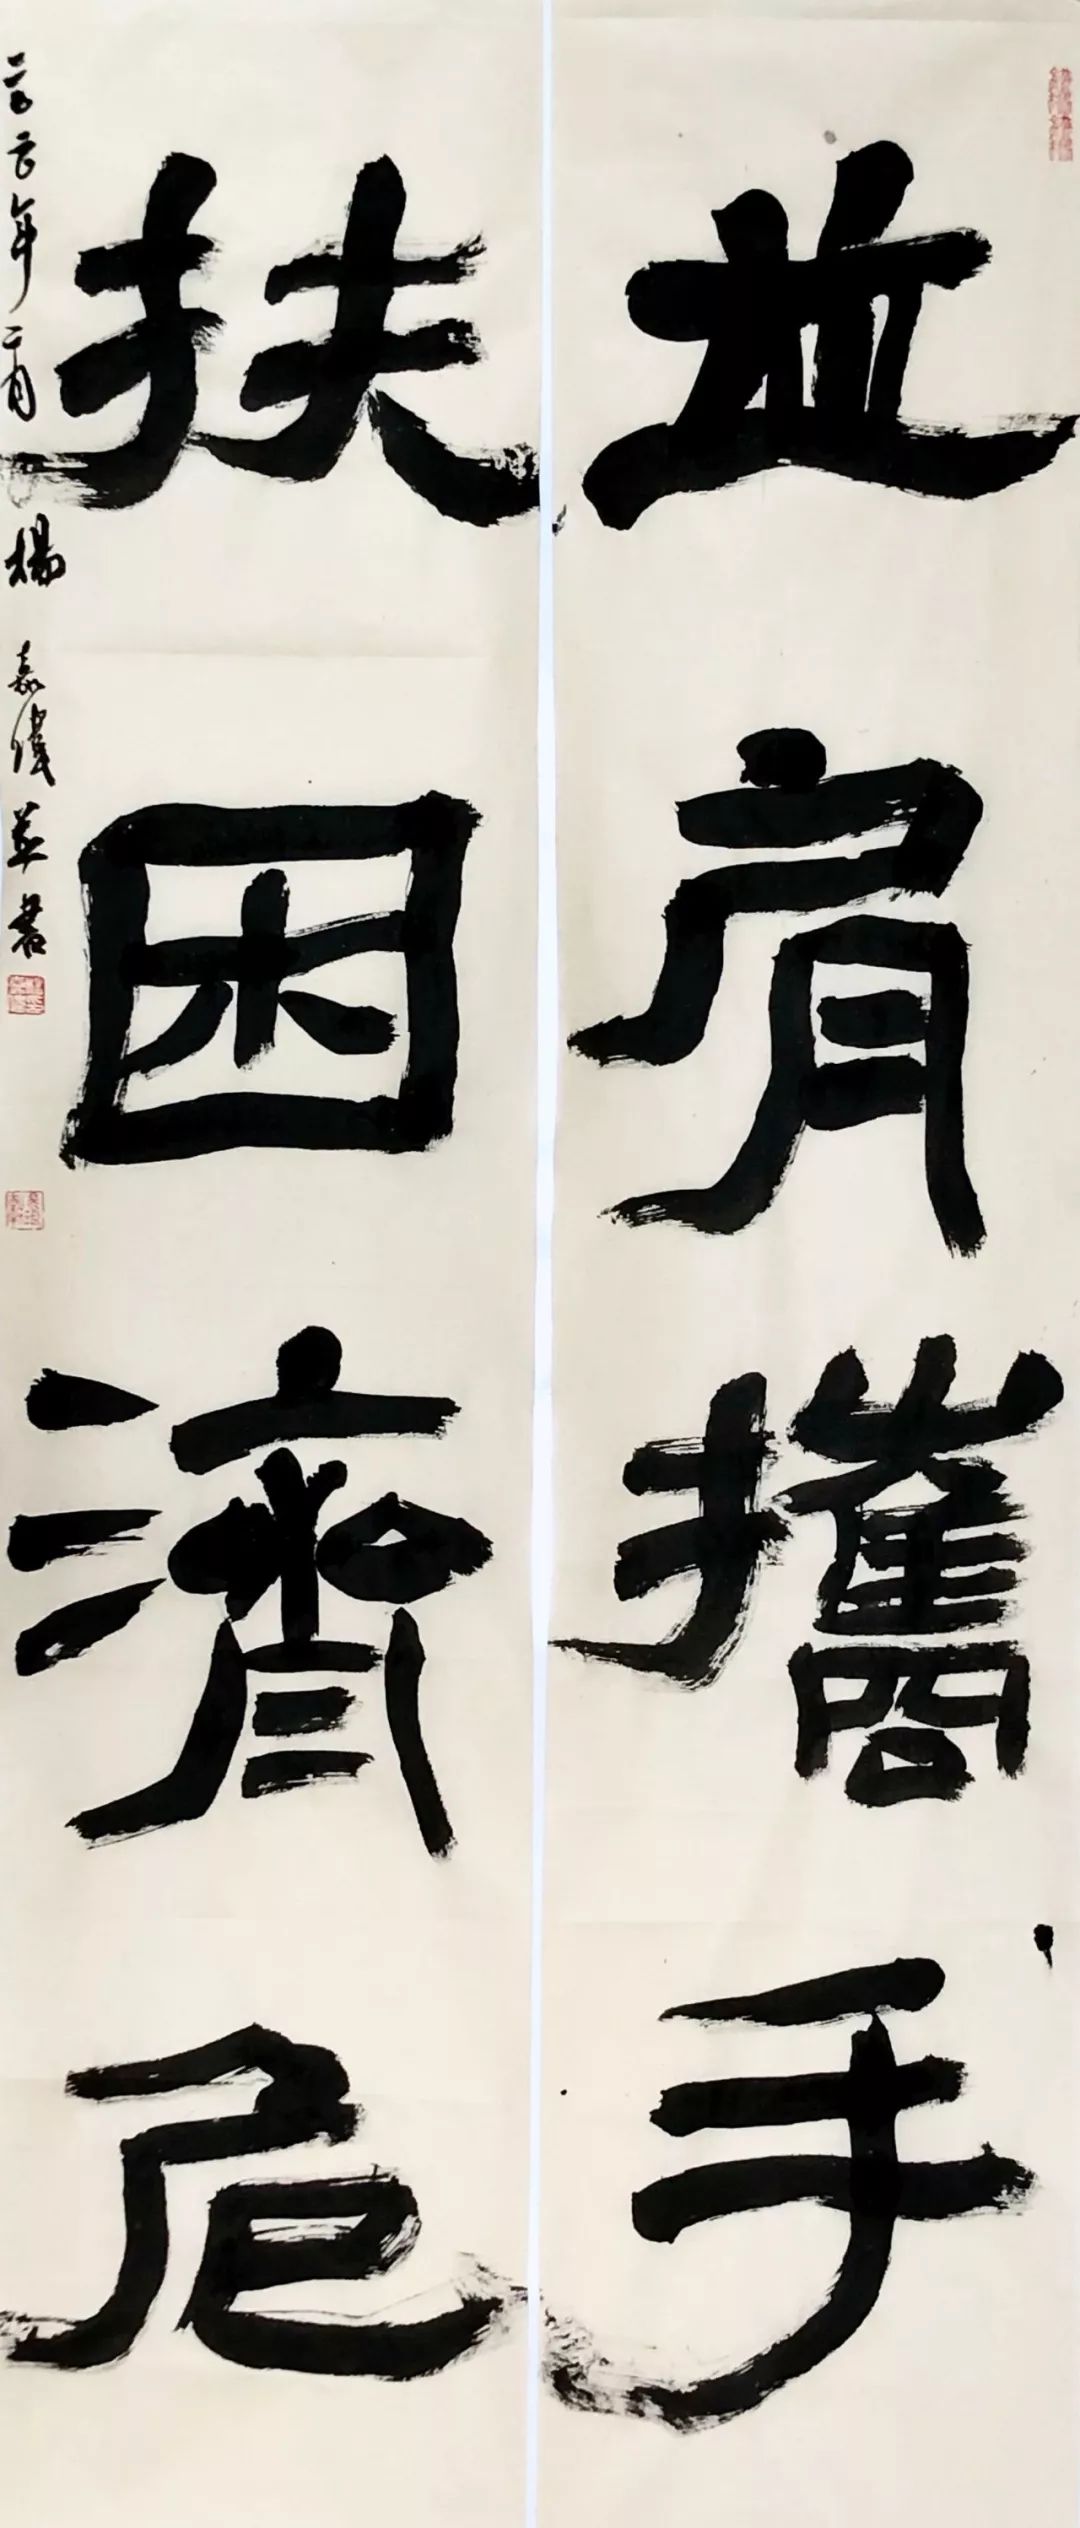 並肩攜手
扶困濟危
二〇二〇年二月 楊嘉偉草書